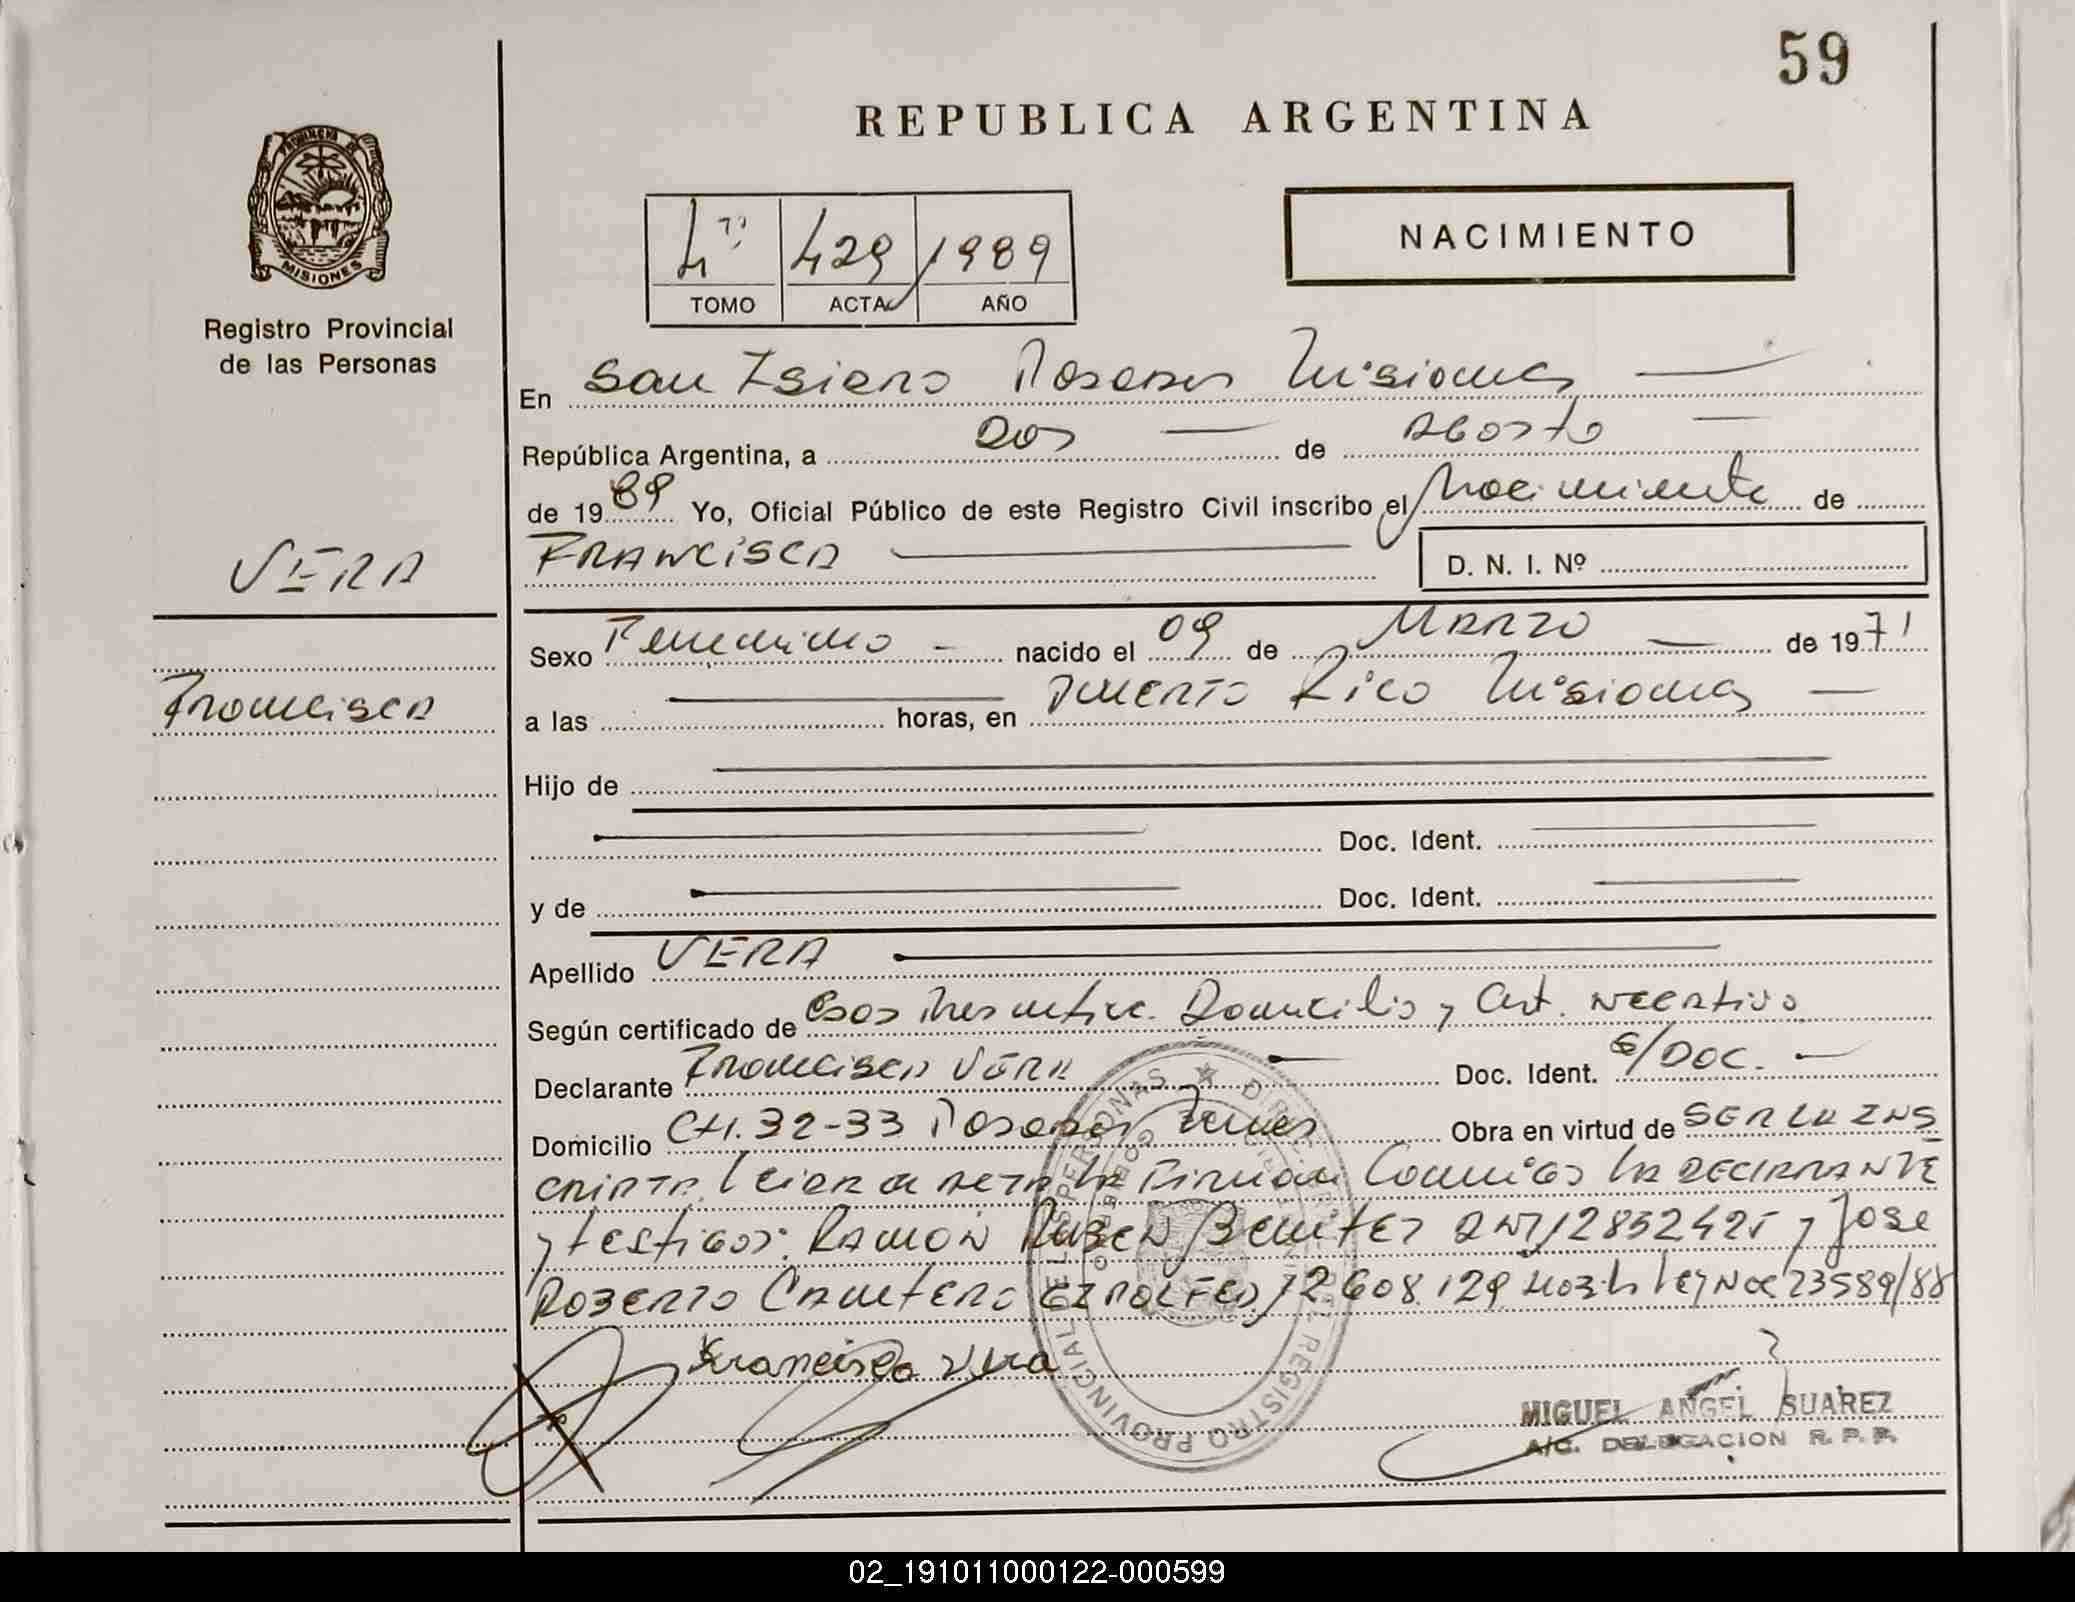 59
REPUBLICA ARGENTINA
PROVINCIA DE
MISIONES
Registro Provincial
de las Personas
4º 429/1989
TOMO ACTA AÑO
NACIMIENTO
En San Isidro Posadas Misiones
República Argentina, a Dos de Agosto
de 1989 Yo, Oficial Público de este Registro Civil inscribo el Nacimiento de
VERA
FRANCISCA
D. N. I. Nº
Sexo Femenino nacido el 09 de MARZO de 1971
Francisca
a las horas, en Puerto Rico Misiones
Hijo de
Doc. Ident.
y de Doc. Ident.
Apellido VERA
Según certificado de Domicilio y Cert. Negativo
Declarante Francisca VERA Doc. Ident. S/DOC.
Domicilio CH. 32-33 Posadas Mnes Obra en virtud de SER LA INS
CRIPTA. Leida el acta la Firman Conmigo la DECLARANTE
y testigos: RAMON RUBEN Benitez DNI 12852425 y Jose
ROBERTO 12608.129 Ley Nac 23589/88
Francisca Vera
MIGUEL ANGEL SUAREZ
A/C. DELEGACION R. P. P.
02_191011000122-000599